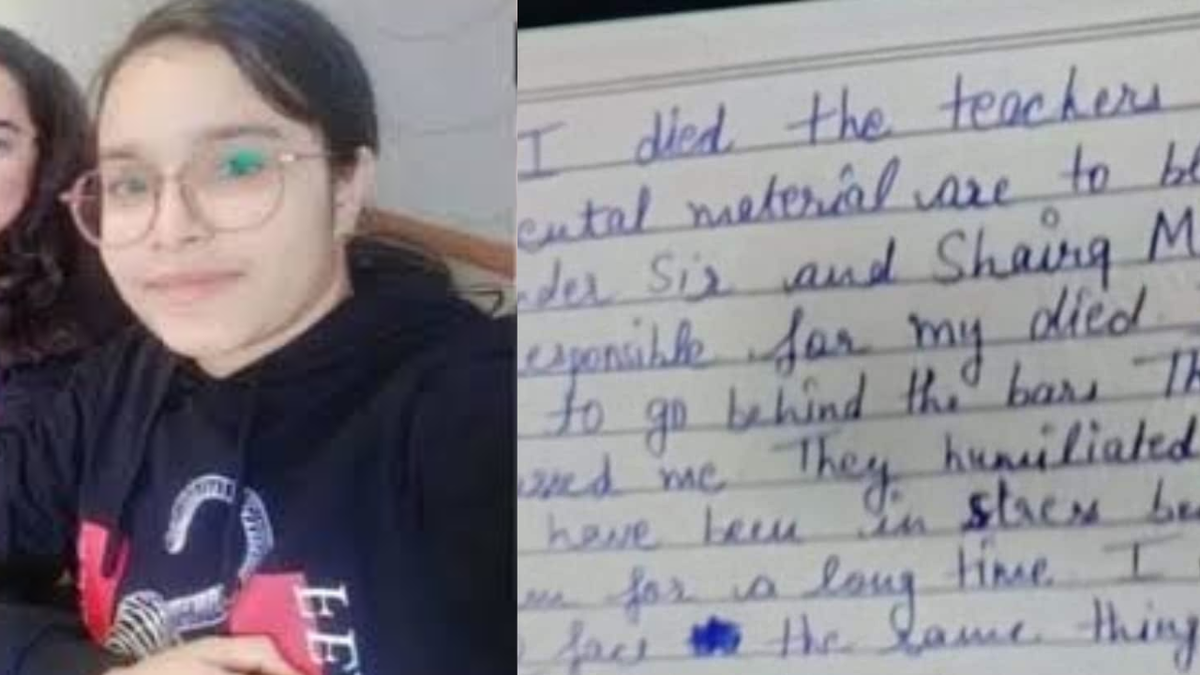 I died the teachers
ental material are to bl
nder Sir and Shairg M
esponsible for my died.
to go behind the bars Th
ssed me They humiliated
have been in stress be
for a long time I
face the same thing
EE